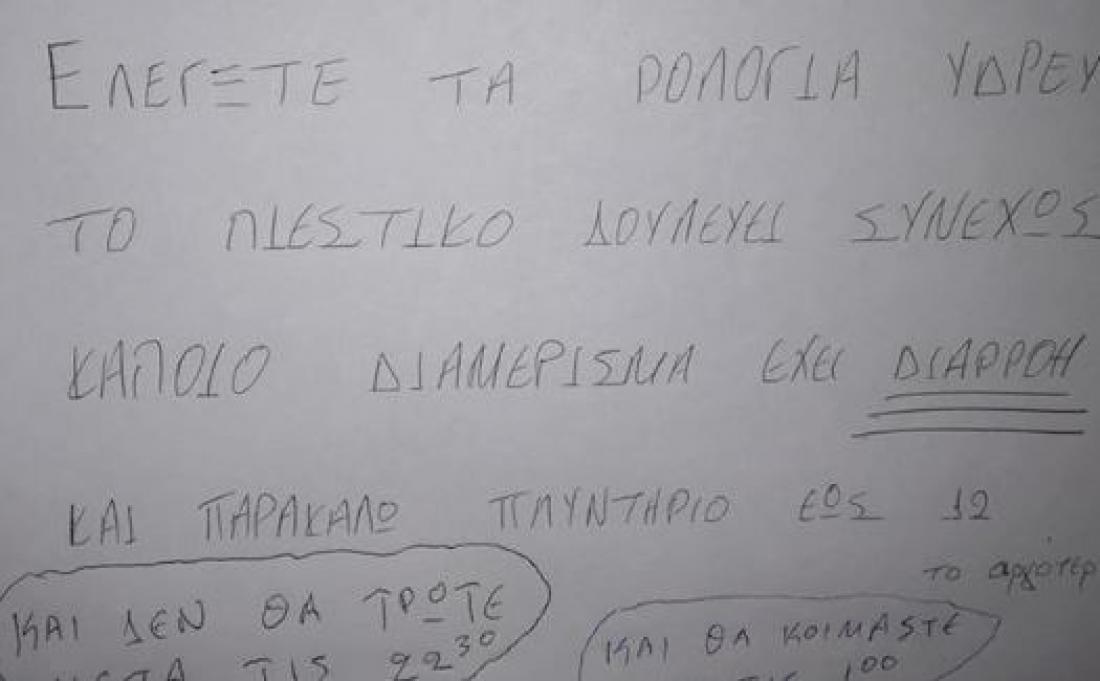 ΕΛΕΓΞΤΕ ΤΑ ΡΟΛΟΓΙΑ ΥΔΡΕΥ
ΤΟ ΠΙΕΣΤΙΚΟ ΔΟΥΛΕΥΕΙ ΣΥΝΕΧΩΣ
ΚΑΠΟΙΟ ΔΙΑΜΕΡΙΣΜΑ ΕΧΕΙ ΔΙΑΡΡΟΗ
ΚΑΙ ΠΑΡΑΚΑΛΩ ΠΛΥΝΤΗΡΙΟ ΕΩΣ 12
το αργότερ
ΚΑΙ ΔΕΝ ΘΑ ΤΡΩΤΕ
ΜΕΤΑ ΤΙΣ 22³⁰
ΚΑΙ ΘΑ ΚΟΙΜΑSΤΕ
ΤΙΣ 1⁰⁰